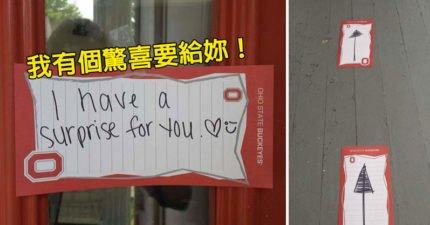 我有個驚喜要給妳！
I have a
surprise for you. ♡☺
OHIO STATE BUCKEYES